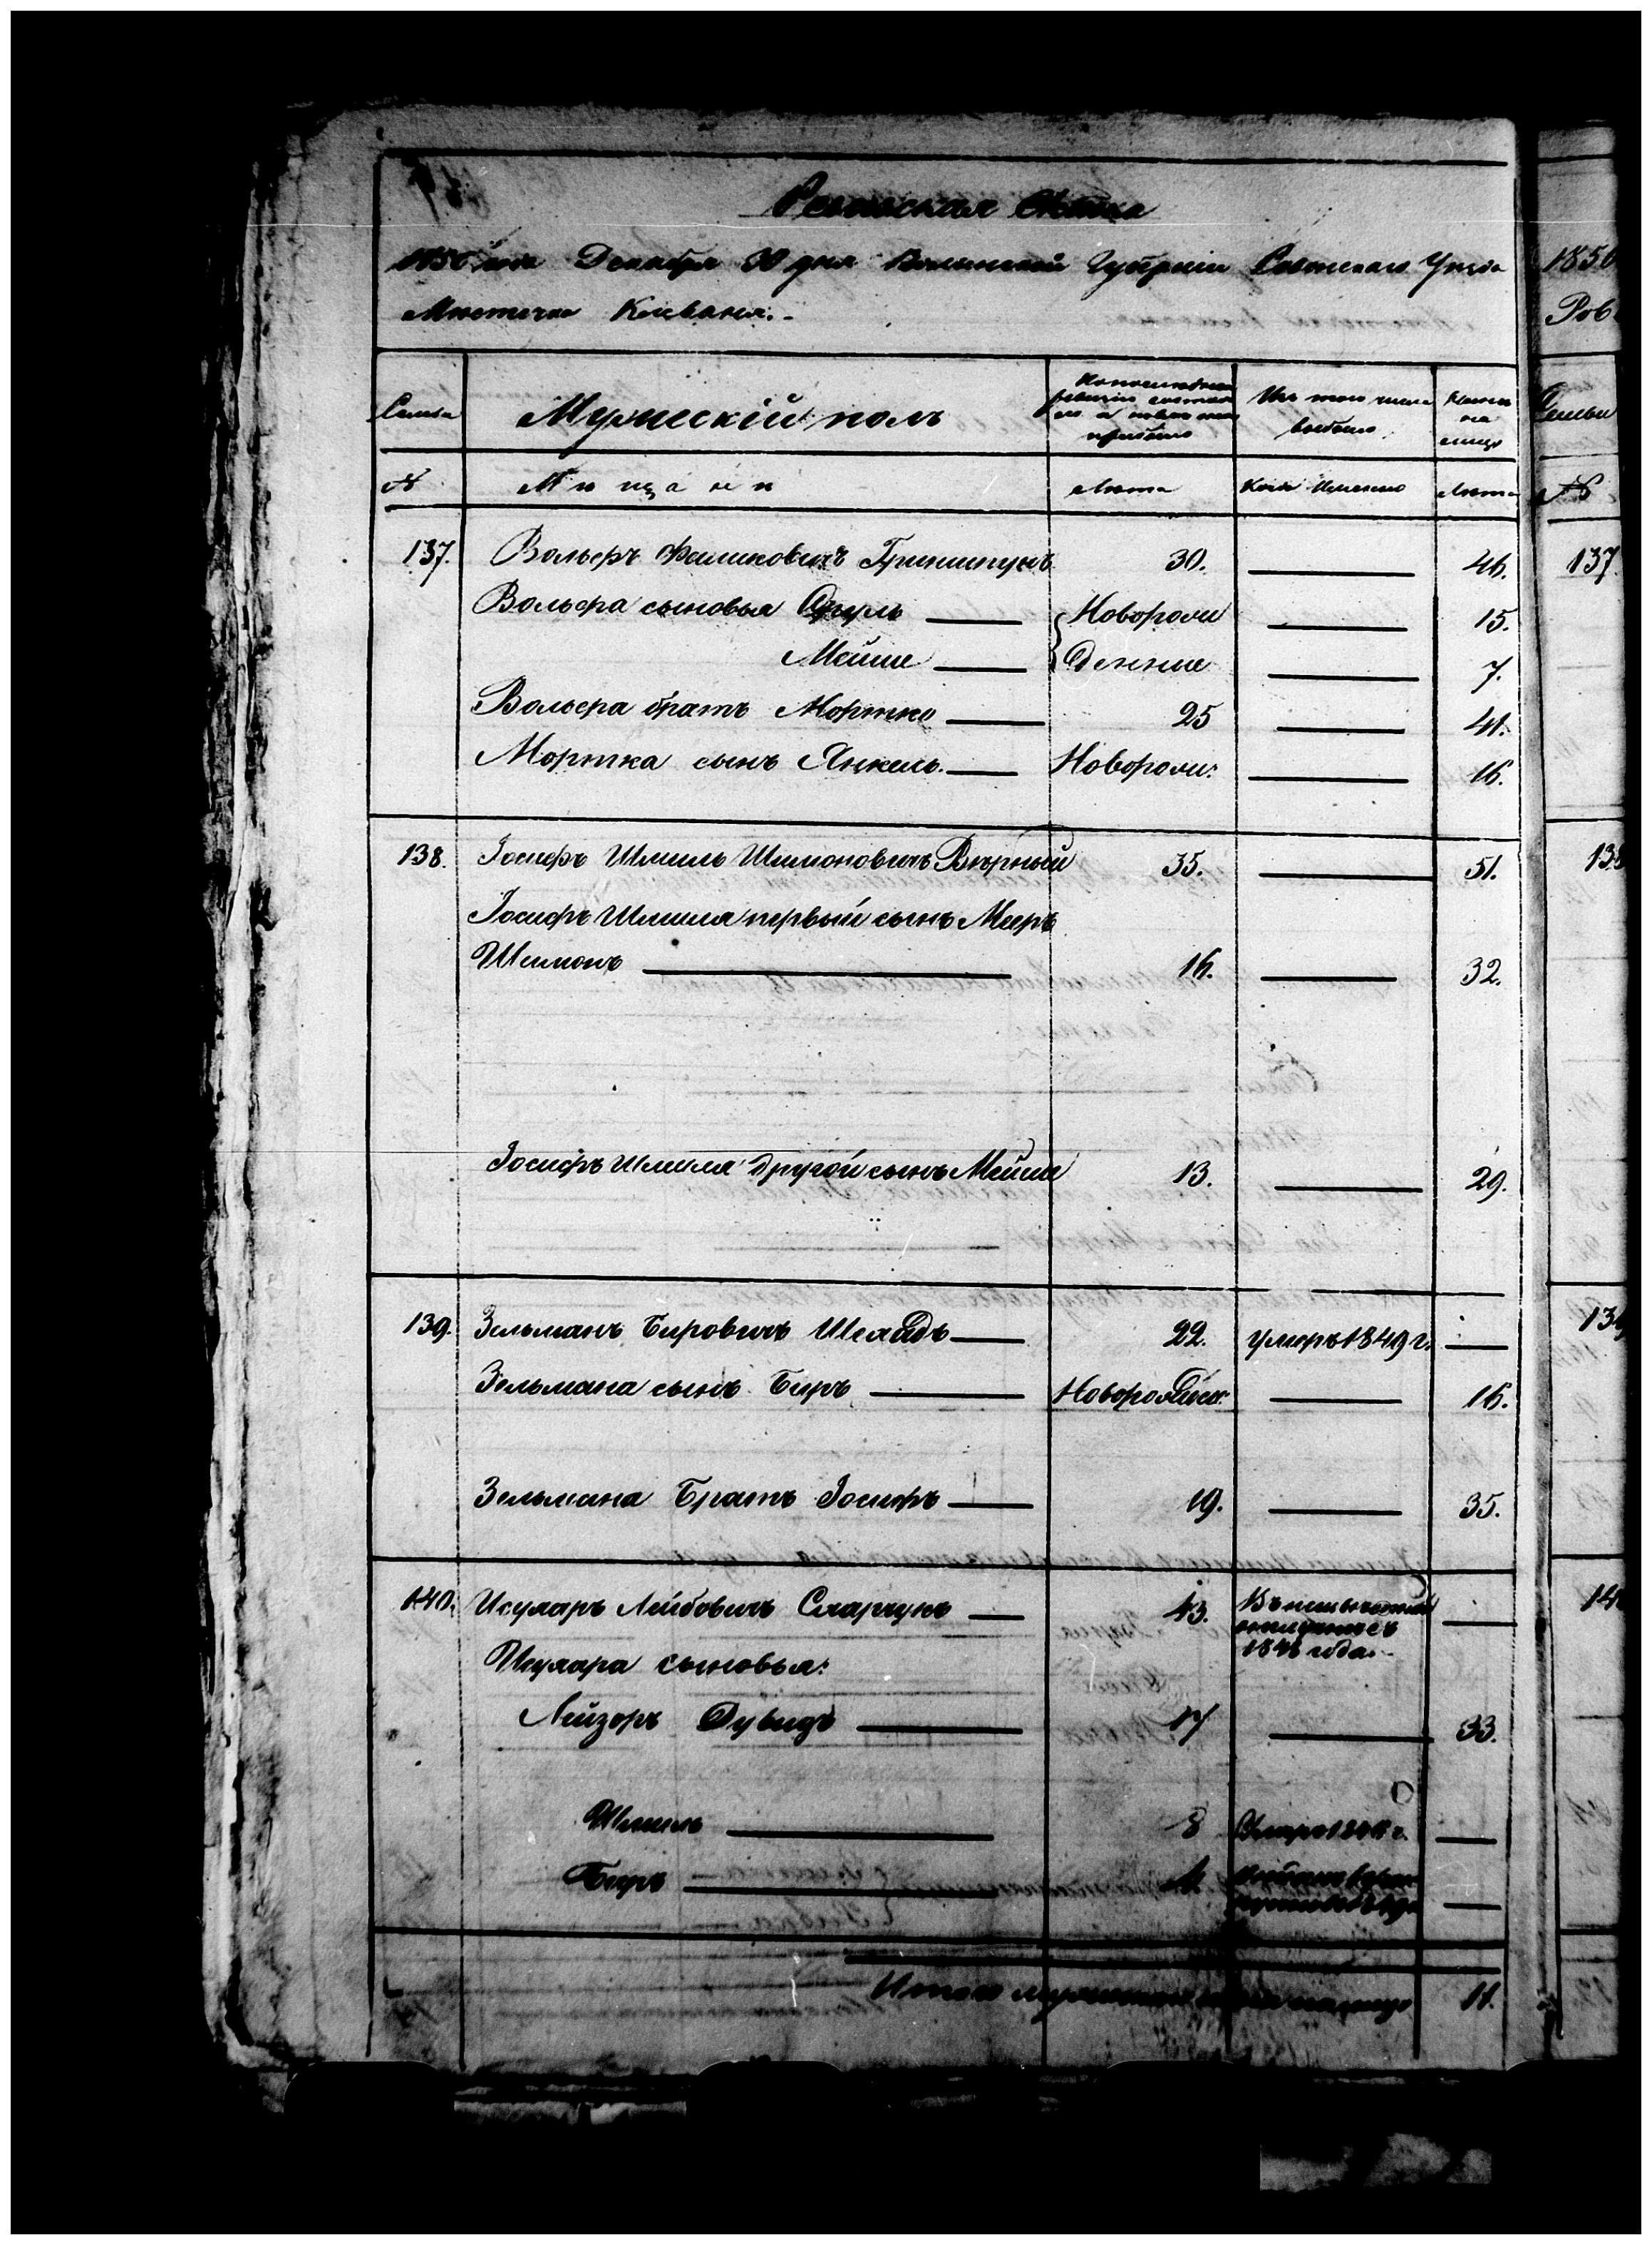 Ревизская Сказка
1850 года Декабря 30 дня Волынской Губернии Ровенского Уезда
Местечка Клеваня.-
Семьи
Мужескій полъ
По последней ревизіи состояло и после того прибыло
Изъ того числа выбыло
Ныне на лицо
№ Мещане Лета Когда Именно Лета
137. Вольфъ Фаликовичъ 30. 46.
Вольфа сыновья Сруль Новорож 15.
Мейше денные 7.
Вольфа братъ Мортко 25 41.
Мортка сынъ Янкель. Новорож: 16.
138. Іосифъ Шмиль Шимоновичъ Верный 35. 51.
Іосифъ Шмиля первый сынъ Мееръ
Шимонъ 16. 32.
Іосифъ Шмиля другой сынъ Мейше 13. 29.
139. Зельманъ Беровичъ 22. умеръ 1849 г.
Зельмана сынъ Беръ Новорожден: 16.
Зельмана Братъ Іосифъ 19. 35.
140. Лейбовичъ 43.
сыновья:
Лейзоръ Дувидъ 17 33.
Шмиль 8
Беръ
Итого мужеского пола на лицо 11.
1850
Ров
Семьи
№
137
138
139
140